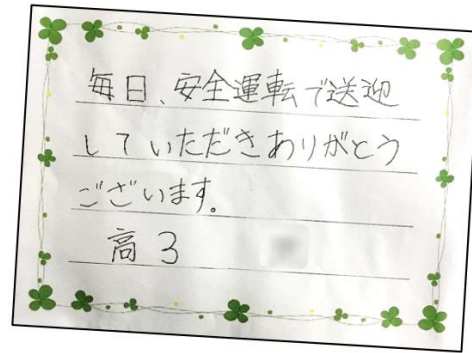 毎日、安全運転で送迎
していただきありがとう
ございます。
高3